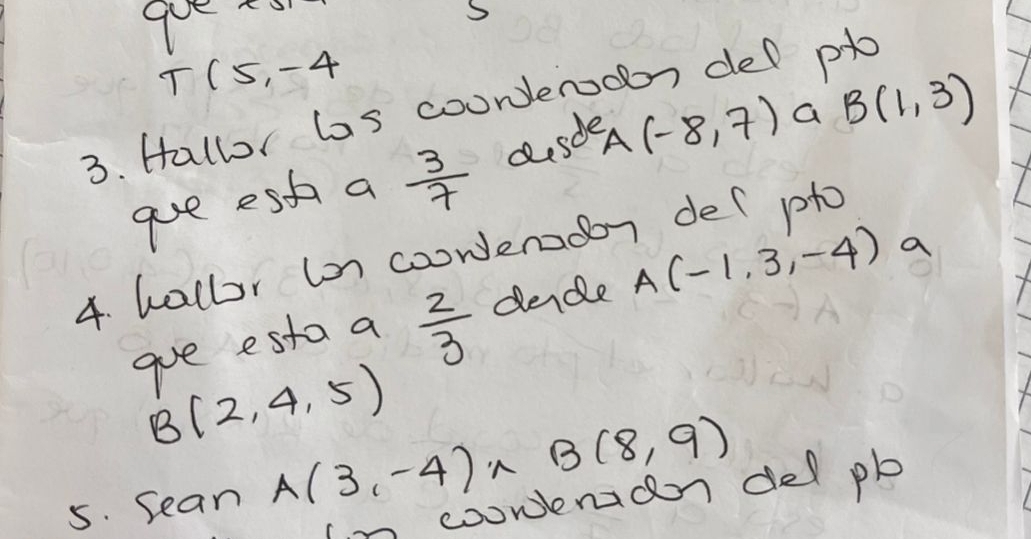 que
T(5,-4
3. Hallar las coordenadas del pto
que esta a 3/7 desde A(-8,7) a B(1,3)
4. hallar las coordenadas del pto
que esta a 2/3 desde A(-1,3,-4) a
B(2,4,5)
5. Sean A(3,-4) ∧ B(8,9)
coordenadas del pto